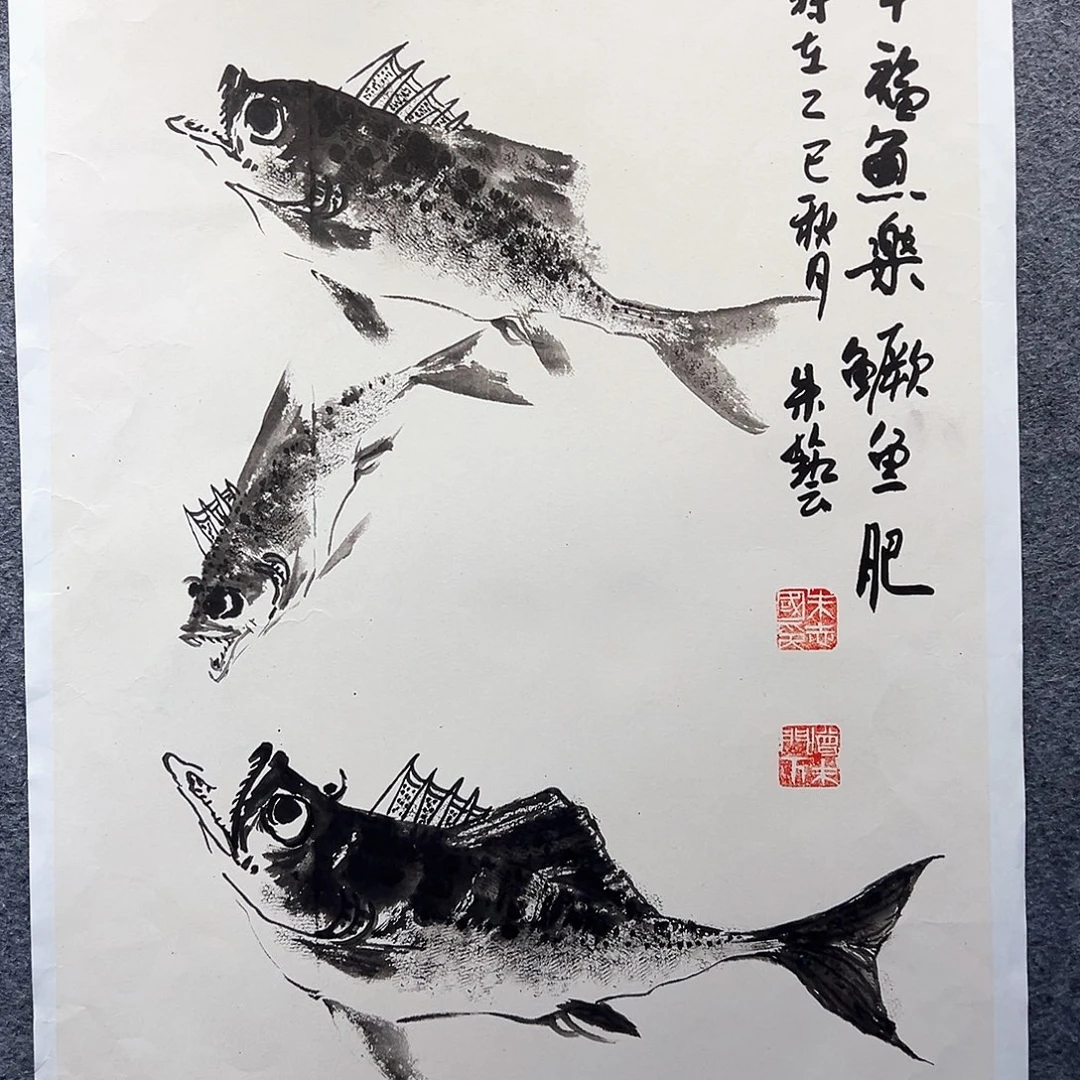 福魚樂 鱖鱼肥
在乙巳秋月 朱藝
朱志國印